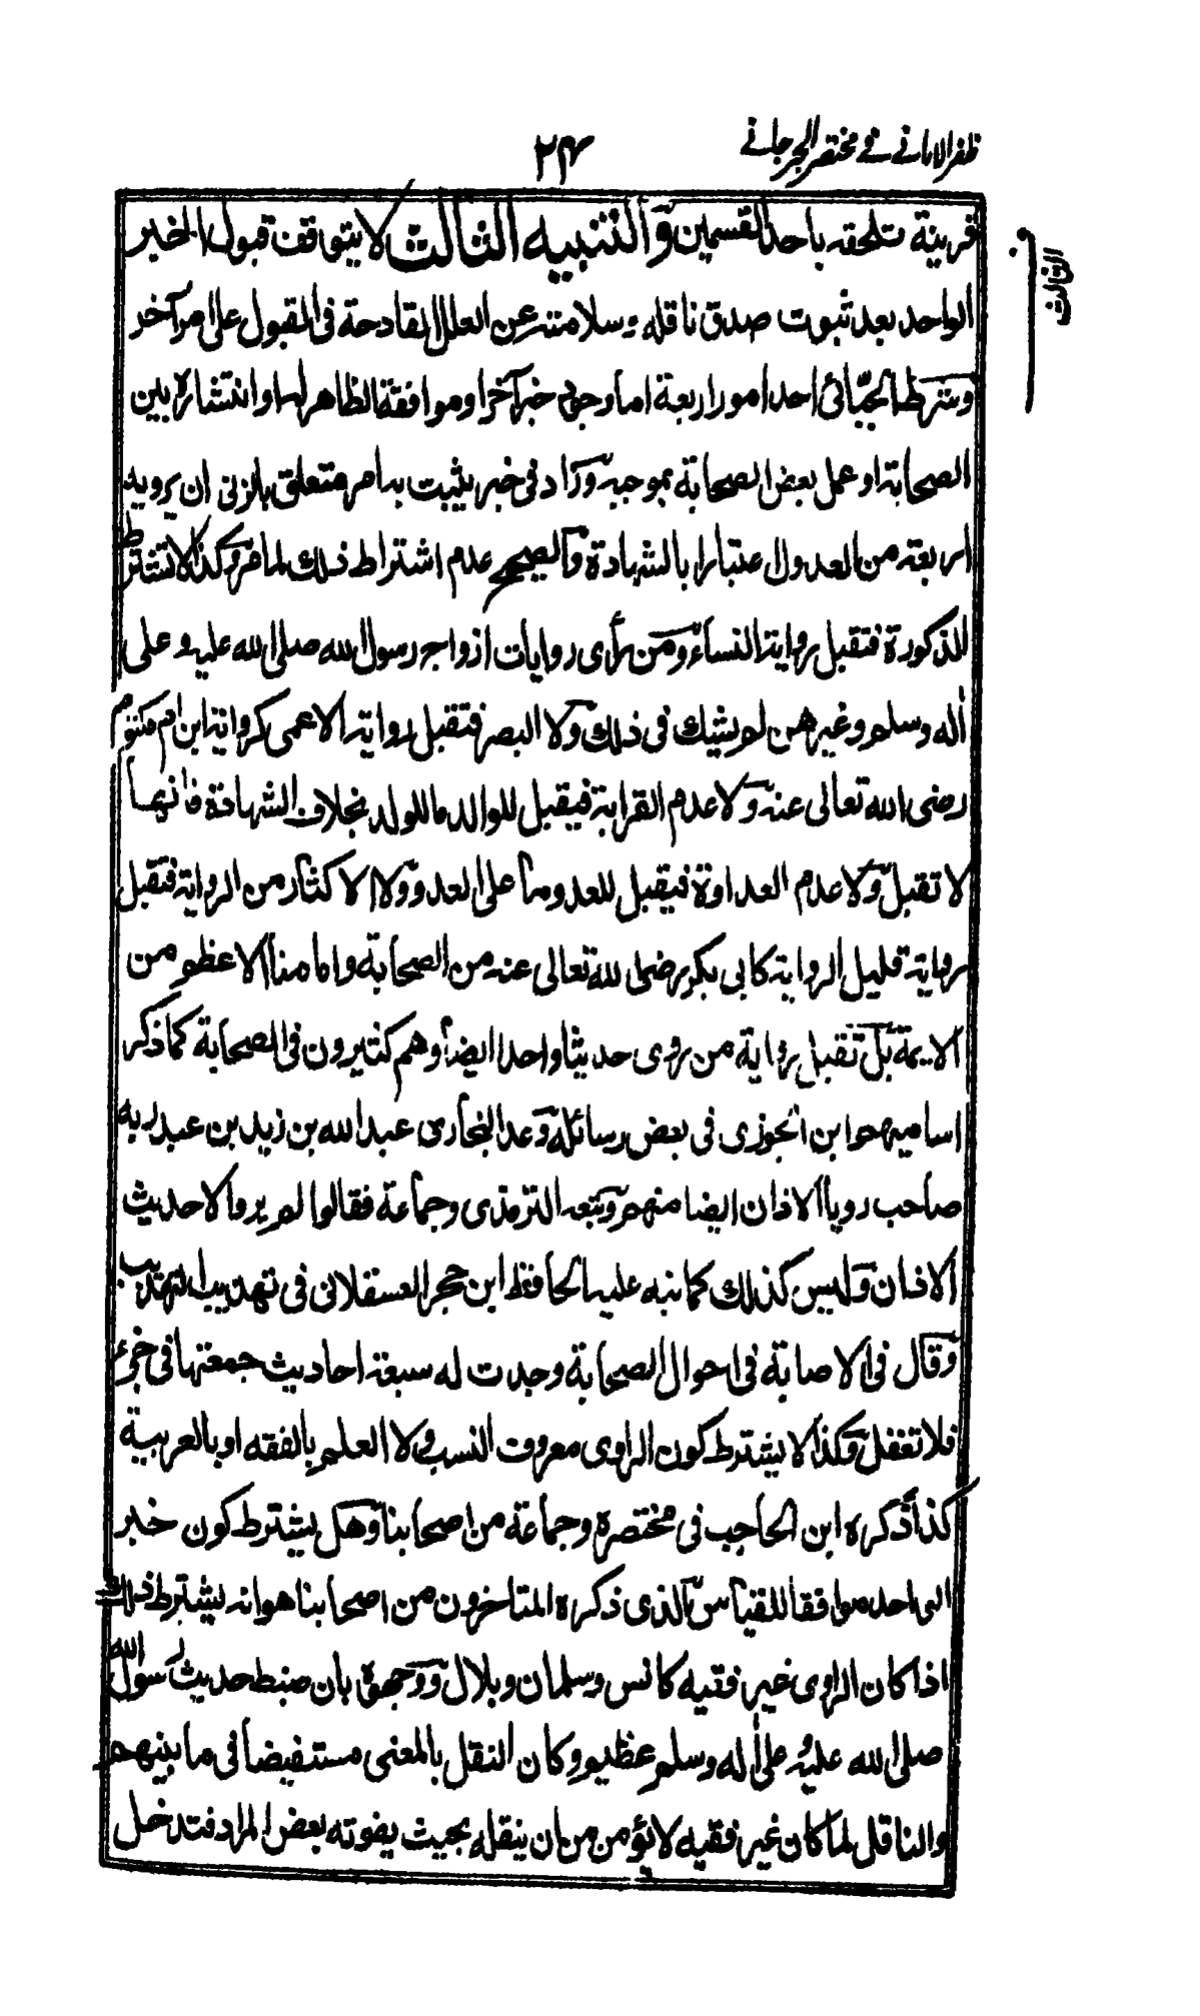 ظفر الاماني في مختصر الجرجاني
٢٤
قرينة تلحقه باحد القسمين والتنبيه الثالث لا يتوقف قبول الخبر
الثالث
الواحد بعد ثبوت صدق ناقله وسلامته عن العلل القادحة فى المقبول على امر آخر
وشرط الجبّائى احد امور اربعة اما وجود خبر آخر او موافقة الظاهر لها او انتشاره بين
الصحابة او عمل بعض الصحابة بموجبه وزاد فى خبر يثبت به امر متعلق بالزنى ان يرويه
اربعة من العدول اعتبارا بالشهادة والصحيح عدم اشتراط ذلك لما مر وكذا لا تشترط
الذكورة فتقبل رواية النساء ومن رأى روايات ازواج رسول الله صلى الله عليه وعلى
اٰله وسلم وغيرهن لم يشك فى ذلك ولا البصر فتقبل رواية الاعمى كرواية ابن ام مكتوم
رضى الله تعالى عنه ولا عدم القرابة فيقبل للوالد ما للولد بخلاف الشهادة فانهما
لا تقبل ولا عدم العداوة فيقبل للعدو وما على العدو ولا الاكثار من الرواية فتقبل
رواية قليل الرواية كابى بكر رضى الله تعالى عنه من الصحابة وامامنا الاعظم من
الايمة بل تقبل رواية من روى حديثا واحدا ايضا وهم كثيرون فى الصحابة كما ذكر
اساميهم ابن الجوزى فى بعض رسائله وعد البخارى عبد الله بن زيد بن عبد ربه
صاحب رويا الاذان ايضا منهم وتبعه الترمذى وجماعة فقالوا لم يرو الا حديث
الاذان وليس كذلك كما نبه عليه الحافظ ابن حجر العسقلانى فى تهذيب التهذيب
وقال فى الاصابة فى احوال الصحابة وجدت له سبعة احاديث جمعتها فى جزء
فلا تغفل وكذا لا يشترط كون الراوى معروف النسب ولا العلم بالفقه او بالعربية
كذا ذكره ابن الحاجب فى مختصره وجماعة من اصحابنا وهل يشترط كون خبر
الواحد موافقا للقياس الذى ذكره المتاخرون من اصحابنا هو انه يشترط ذلك
اذا كان الراوى غير فقيه كانس وسلمان وبلال ووجهوه بان ضبط حديث رسول الله
صلى الله عليه وعلى اٰله وسلم عظيم وكان النقل بالمعنى مستفيضا فى ما بينهم
والناقل لما كان غير فقيه لا يؤمن من ان ينقله بحيث يفوته بعض المراد فتدخل